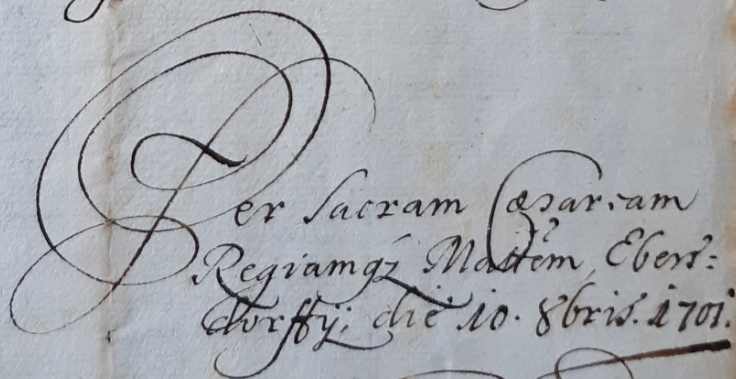 Per Sacram Cæsaream
Regiamq3 Mattem, Ebers:
dorffÿ, die 10. 8bris. 1701.